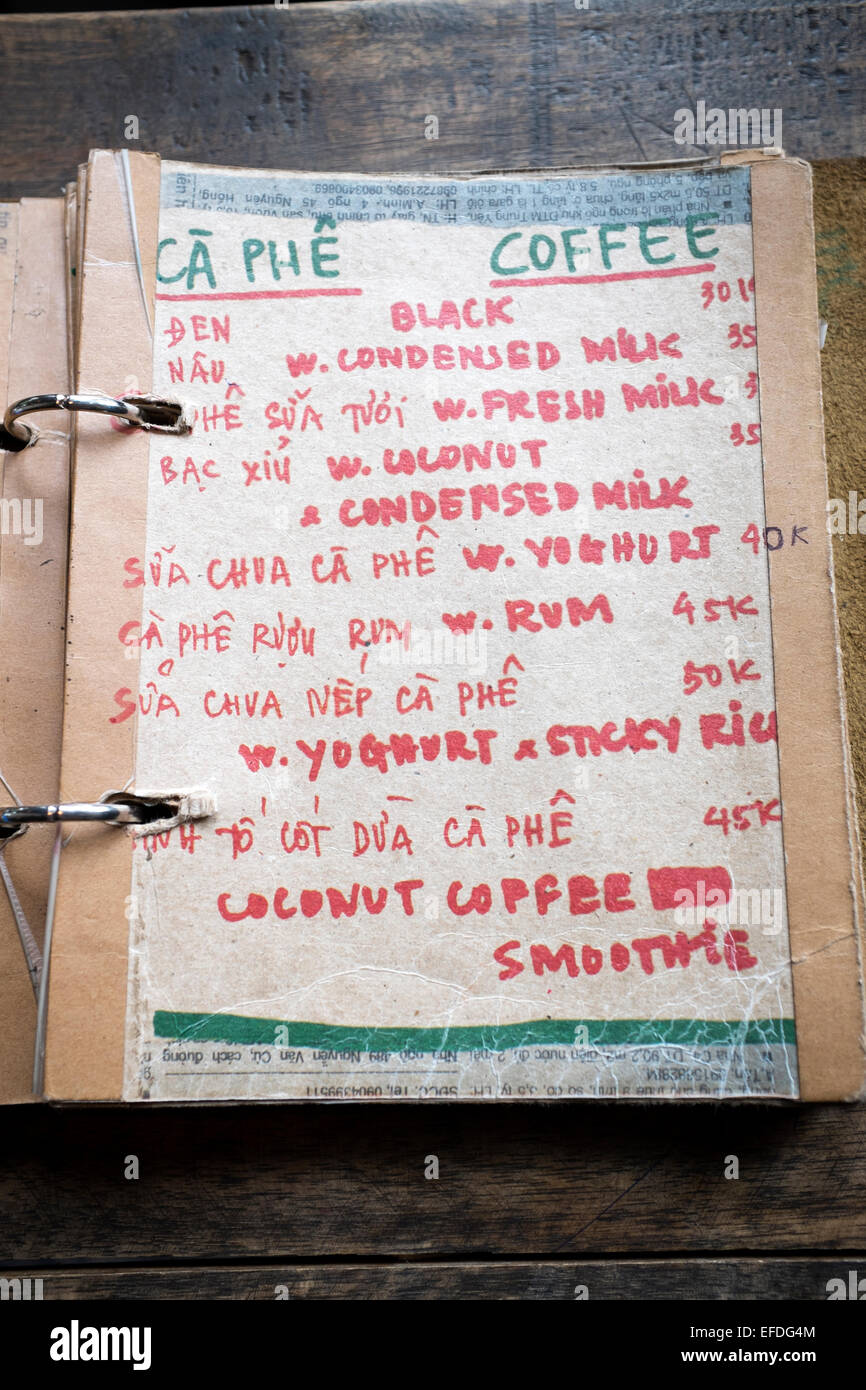 CÀ PHÊ COFFEE
ĐEN BLACK 30K
NÂU W. CONDENSED MILK 35
PHÊ SỮA TƯƠI W. FRESH MILK 3
BẠC XỈU W. COCONUT 35
& CONDENSED MILK
SỮA CHUA CÀ PHÊ W. YOGHURT 40K
CÀ PHÊ RƯỢU RUM W. RUM 45K
SỮA CHUA NẾP CÀ PHÊ 50K
W. YOGHURT & STICKY RICE
TỐ CỐT DỪA CÀ PHÊ 45K
COCONUT COFFEE
SMOOTHIE
alamy
Image ID: EFDG4M
www.alamy.com